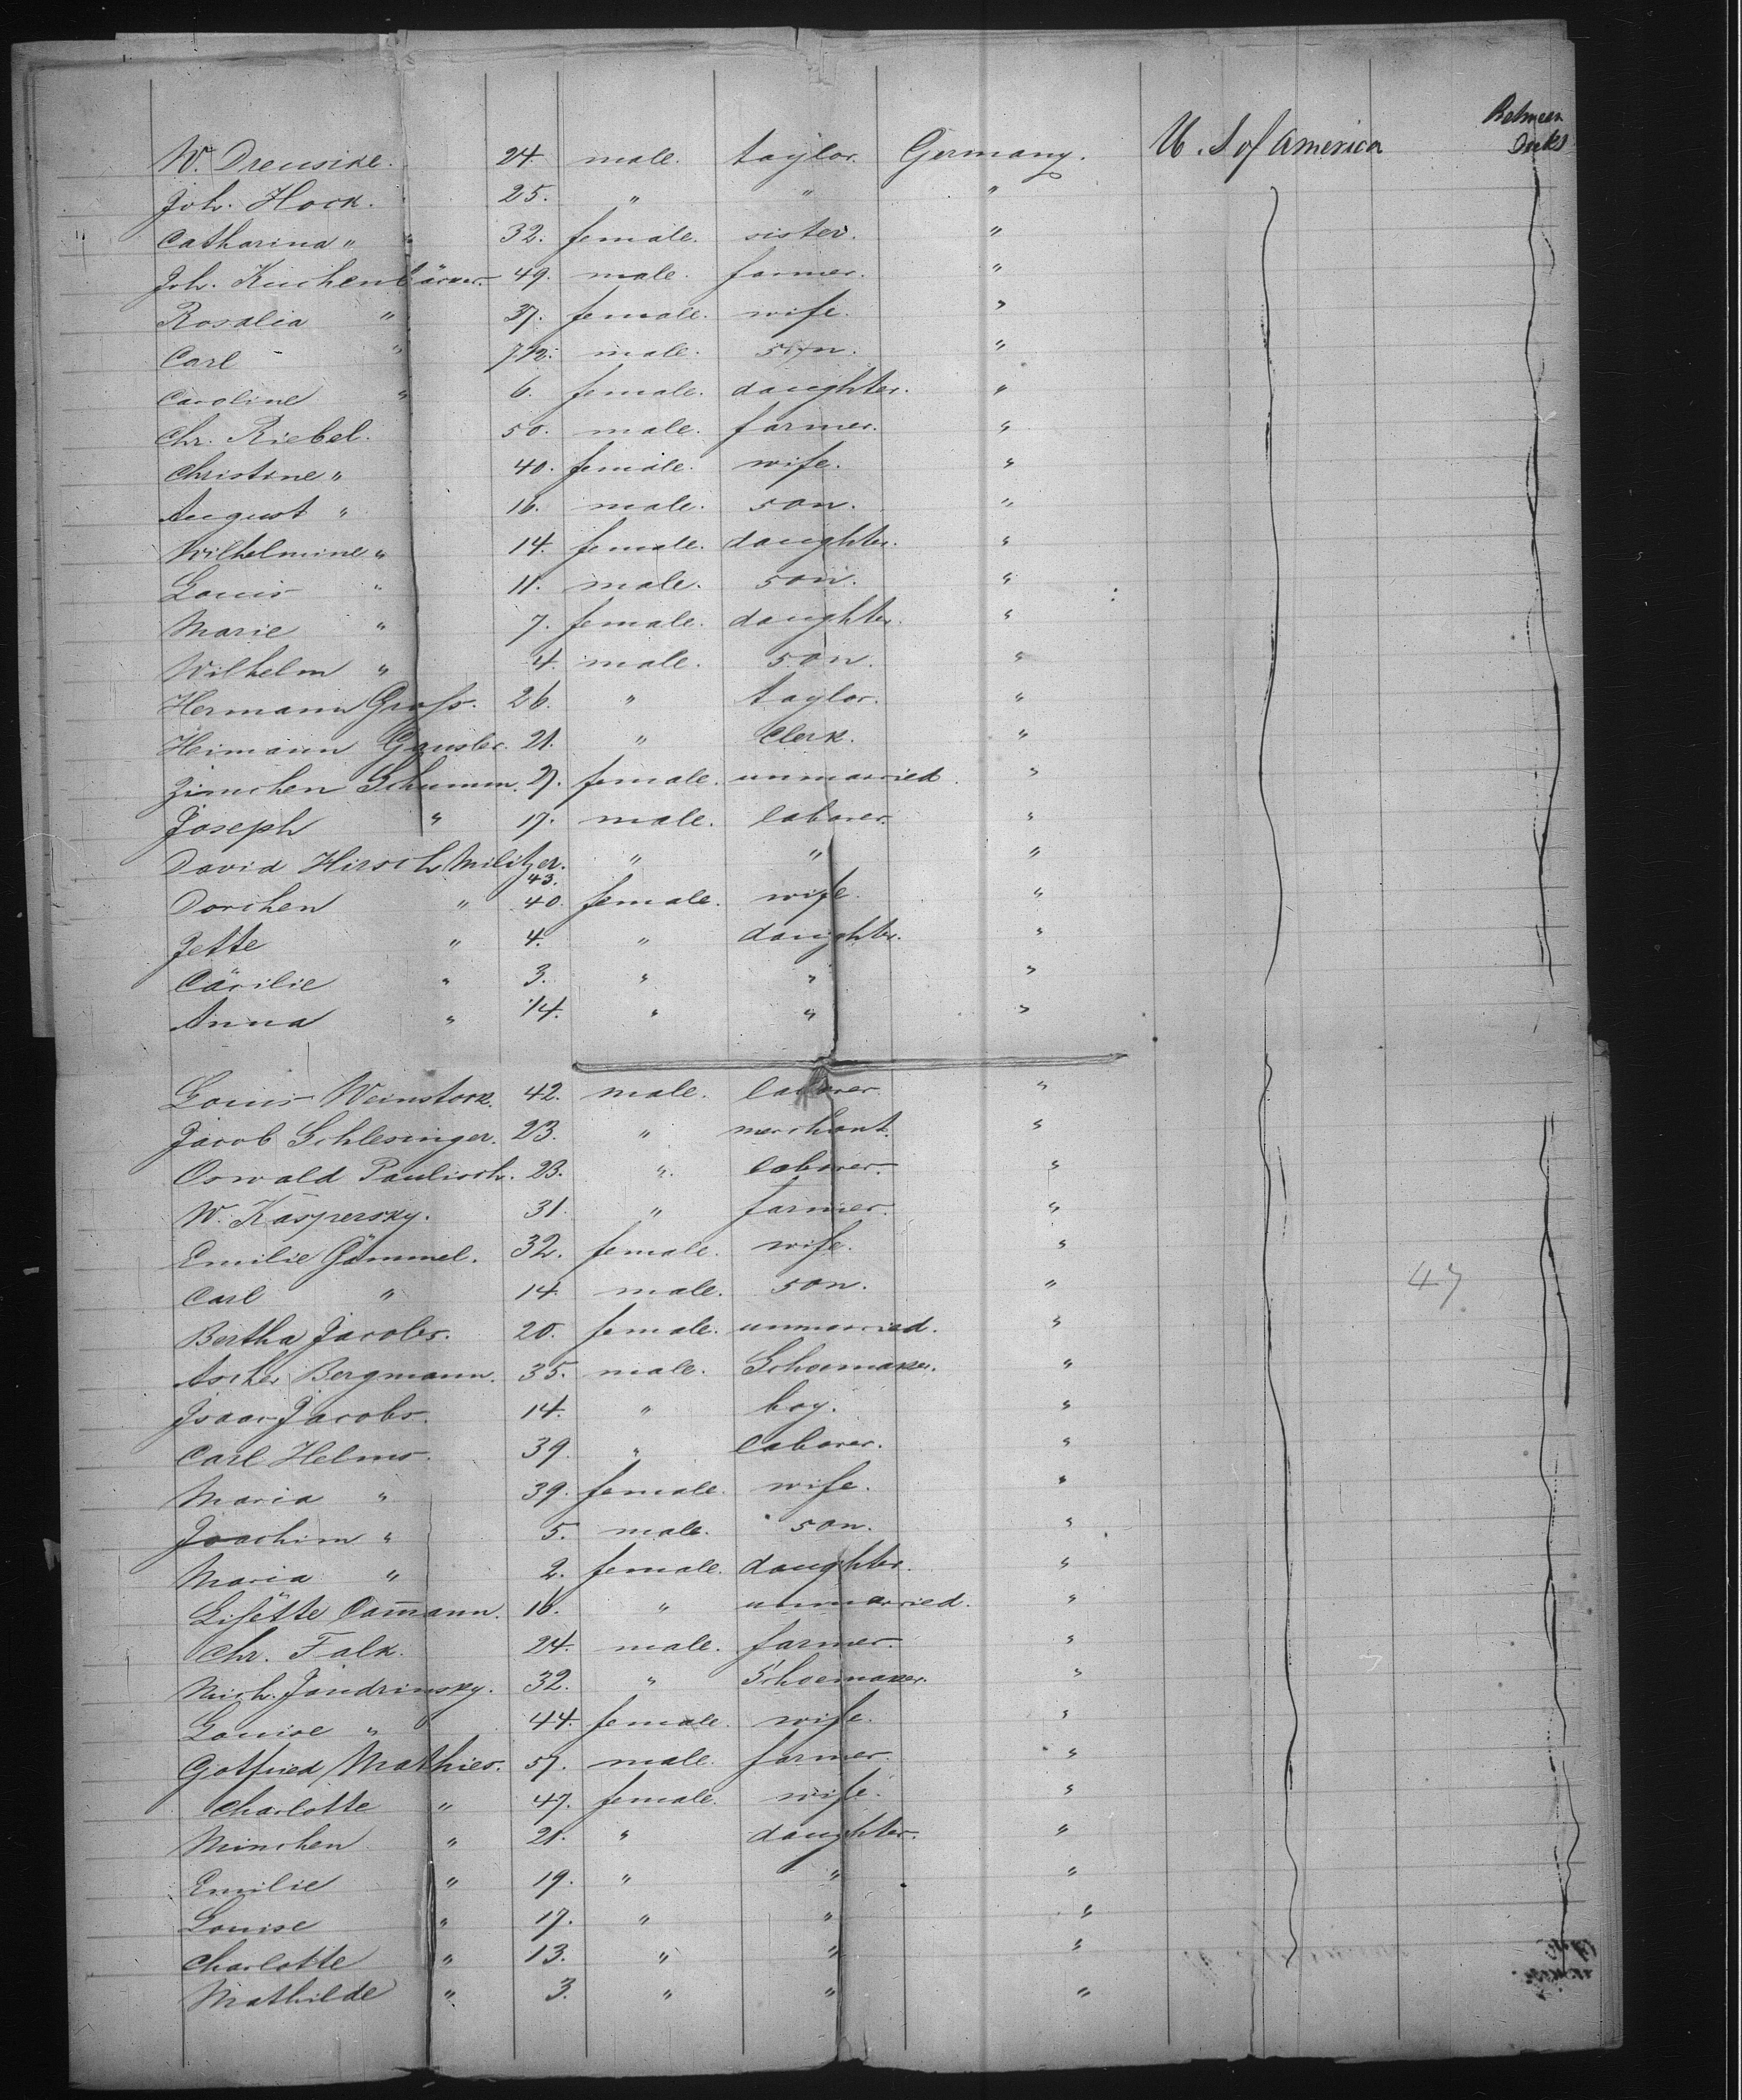 Between Decks
W. Dreusike. 24. male. taylor. Germany. U. S of America
Joh. Hock. 25. " " "
Catharina " 32. female. sister. "
Joh. Kuchenbäcker. 49. male. farmer. "
Rosalia " 37. female. wife. "
Carl " 7½. male. son. "
Caroline " 6. female. daughter. "
Chr. Riebel. 50. male. farmer. "
Christine " 40. female. wife. "
August " 16. male. son. "
Wilhelmine " 14. female. daughter. "
Louis " 11. male. son. "
Marie " 7. female. daughter. "
Wilhelm " 4. male. son. "
Hermann Groſs. 26. " taylor. "
Heimann 21. " Clerk. "
Schumm. 27. female. unmarried. "
Joseph " 17. male. laborer. "
David Hirsch Militzer. 43. " " "
Dorchen " 40. female. wife. "
Jette " 4. " daughter. "
Cäcilie " 3. " " "
Anna " 1/4. " " "
Louis Weinstock. 42. male. laborer. "
Jacob Schlesinger. 23. " merchant. "
Oswald Paulisch. 23. " laborer. "
W. Kaspersky. 31. " farmer. "
Emilie Gömmel. 32. female. wife. "
Carl " 14. male. son. " 47
Bertha Jacobs. 20. female. unmarried. "
Ascher Bergmann. 35. male. Schoemaker. "
Isaac Jacobs. 14. " boy. "
Carl Helms. 39. " laborer. "
Maria " 39. female. wife. "
Joachim " 5. male. son. "
Maria " 2. female. daughter. "
Liſette Dam̄ann. 16. " unmarried. "
Chr. Falk. 24. male. farmer. "
Mich. Jandrinsky. 32. " Schoemaker. "
Louise " 44. female. wife. "
Gotfried Mathies. 57. male. farmer. "
Charlotte " 47. female. wife. "
Minchen " 21. " daughter. "
Emilie " 19. " " "
Louise " 17. " " "
Charlotte " 13. " " "
Mathilde " 3. " " "